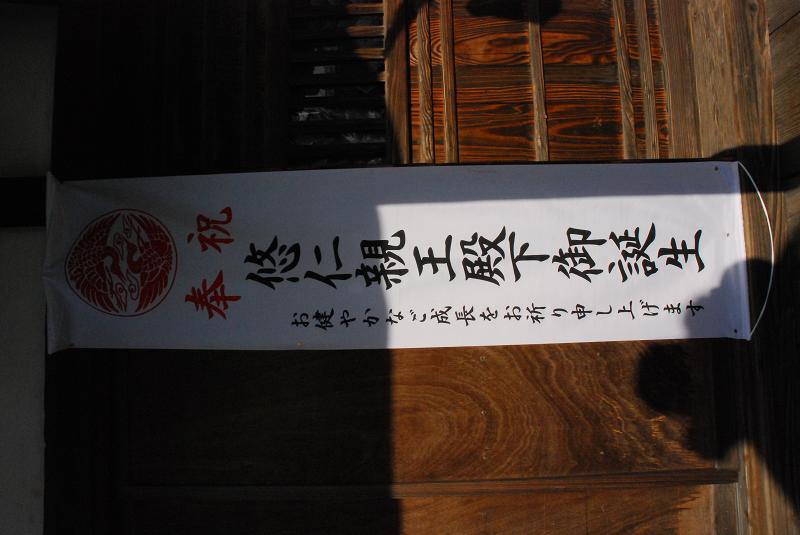 奉祝
悠仁親王殿下御誕生
お健やかなご成長をお祈り申し上げます